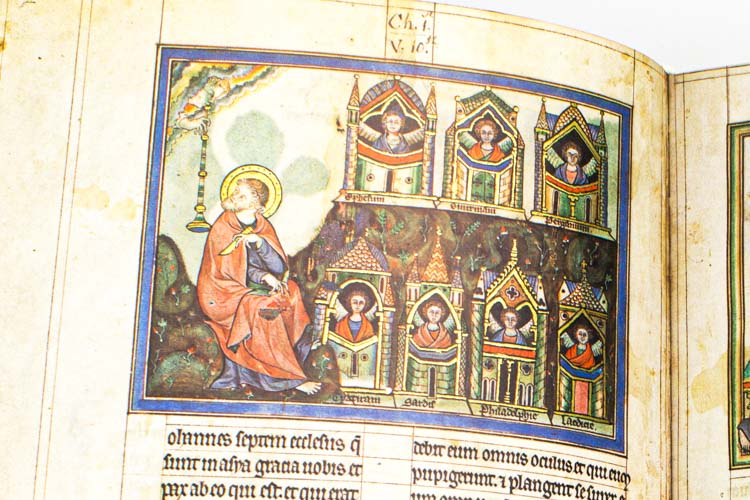 Ch. 1.
V. 10.
Ephesum
Pergamum
Sardis
Philadelphie
Laodicie
ohannes septem ecclesiis q̄
sunt in asya gracia uobis et
pax ab eo qui est. et qui erat
debit eum omnis oculus et qui eum
pupigerunt. ⁊ plangent se sup̄